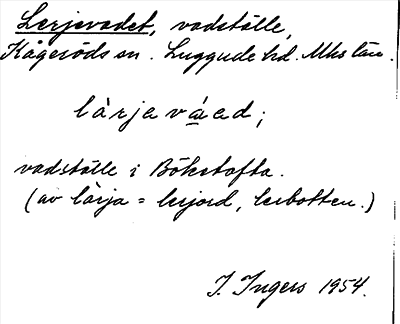 Lerjevadet, vadställe,
Kågeröds sn. Luggude hd. Mhs län.
làrja váad;
vadställe i Bökstofta.
(av làrja = lerjord, lerbotten.)
I. Ingers 1954.